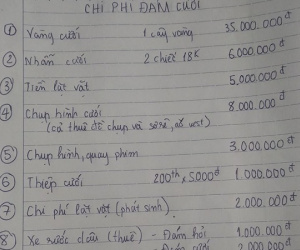 CHI PHÍ ĐÁM CƯỚI
① Vàng cưới 1 cây vàng 35.000.000đ
② Nhẫn cưới 2 chiếc 18K 6.000.000đ
③ Tiền lặt vặt 5.000.000đ
④ Chụp hình cưới 8.000.000đ
(cả thuê đồ chụp và sörê, áo vest)
⑤ Chụp hình, quay phim 3.000.000đ
⑥ Thiệp cưới 200th x 5000đ 1.000.000đ
⑦ Chi phí lặt vặt (phát sinh) 2.000.000đ
⑧ Xe rước dâu (thuê) - Đám hỏi 1.000.000đ
- Đám cưới 2.000.000đ